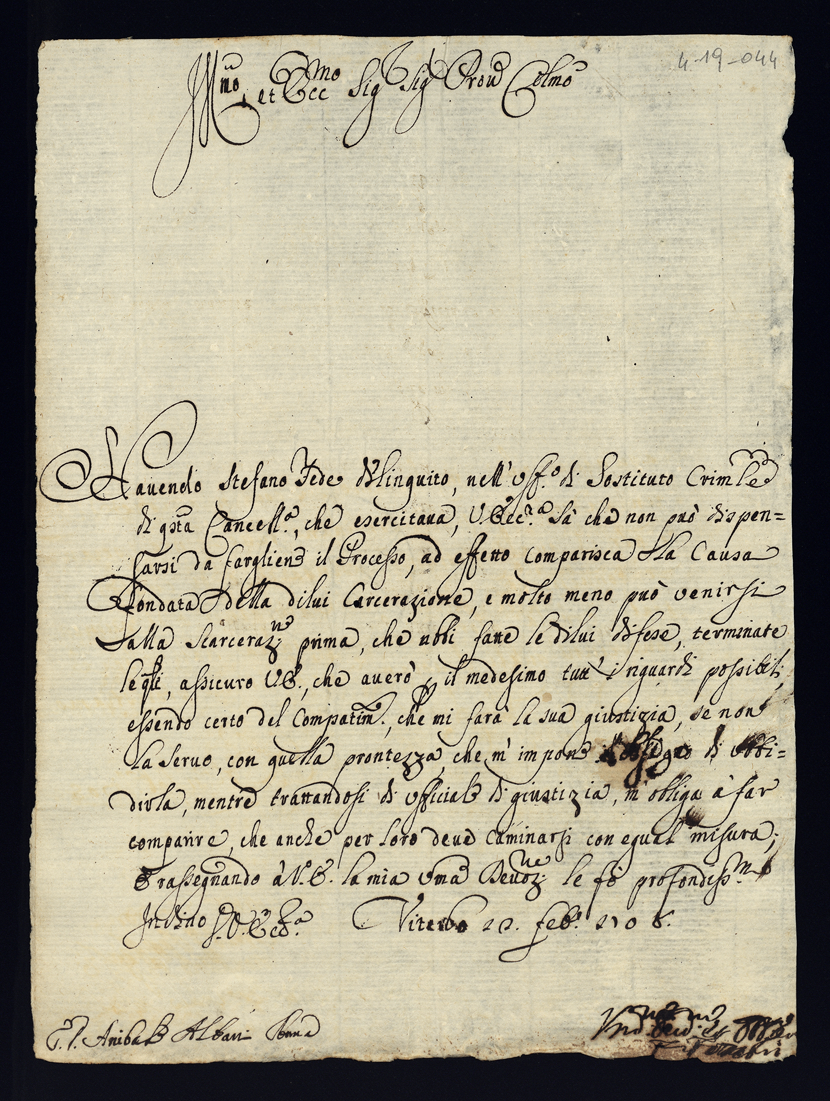 4-19-044
Ill.mo et Ecc.mo Sig Sig Prōn Colmo
Hauendo Stefano Fede delinquito, nell' Uff.o di Sostituto Crim.le
di q.sta Cancell.a, che esercitaua, V. Ecc.a sà che non può dispen=
sarsi da fargliene il Processo, ad effetto comparisca la Causa
fondata della dilui Carcerazione, e molto meno può venirsi
alla Scarceraz.ne prima, che abbi fatte le dilui difese, terminate
le q.li, assicuro V.E., che auerò p il medesimo tutt' i riguardi possibili,
essendo certo del Compatim.to, che mi farà la sua giustizia, se non
la seruo, con quella prontezza, che m' impone di Vbbi=
dirla, mentre trattandosi di officiale di giustizia, m' obliga à far
comparire, che anche per loro deue caminarsi con egual misura;
E rassegnando à V.E. la mia uma Deuoz.ne le fò profondiss.mo
Inchino D. V. Ecc.za Viterbo 22. feb.o 1708.
Anibale Albani Roma